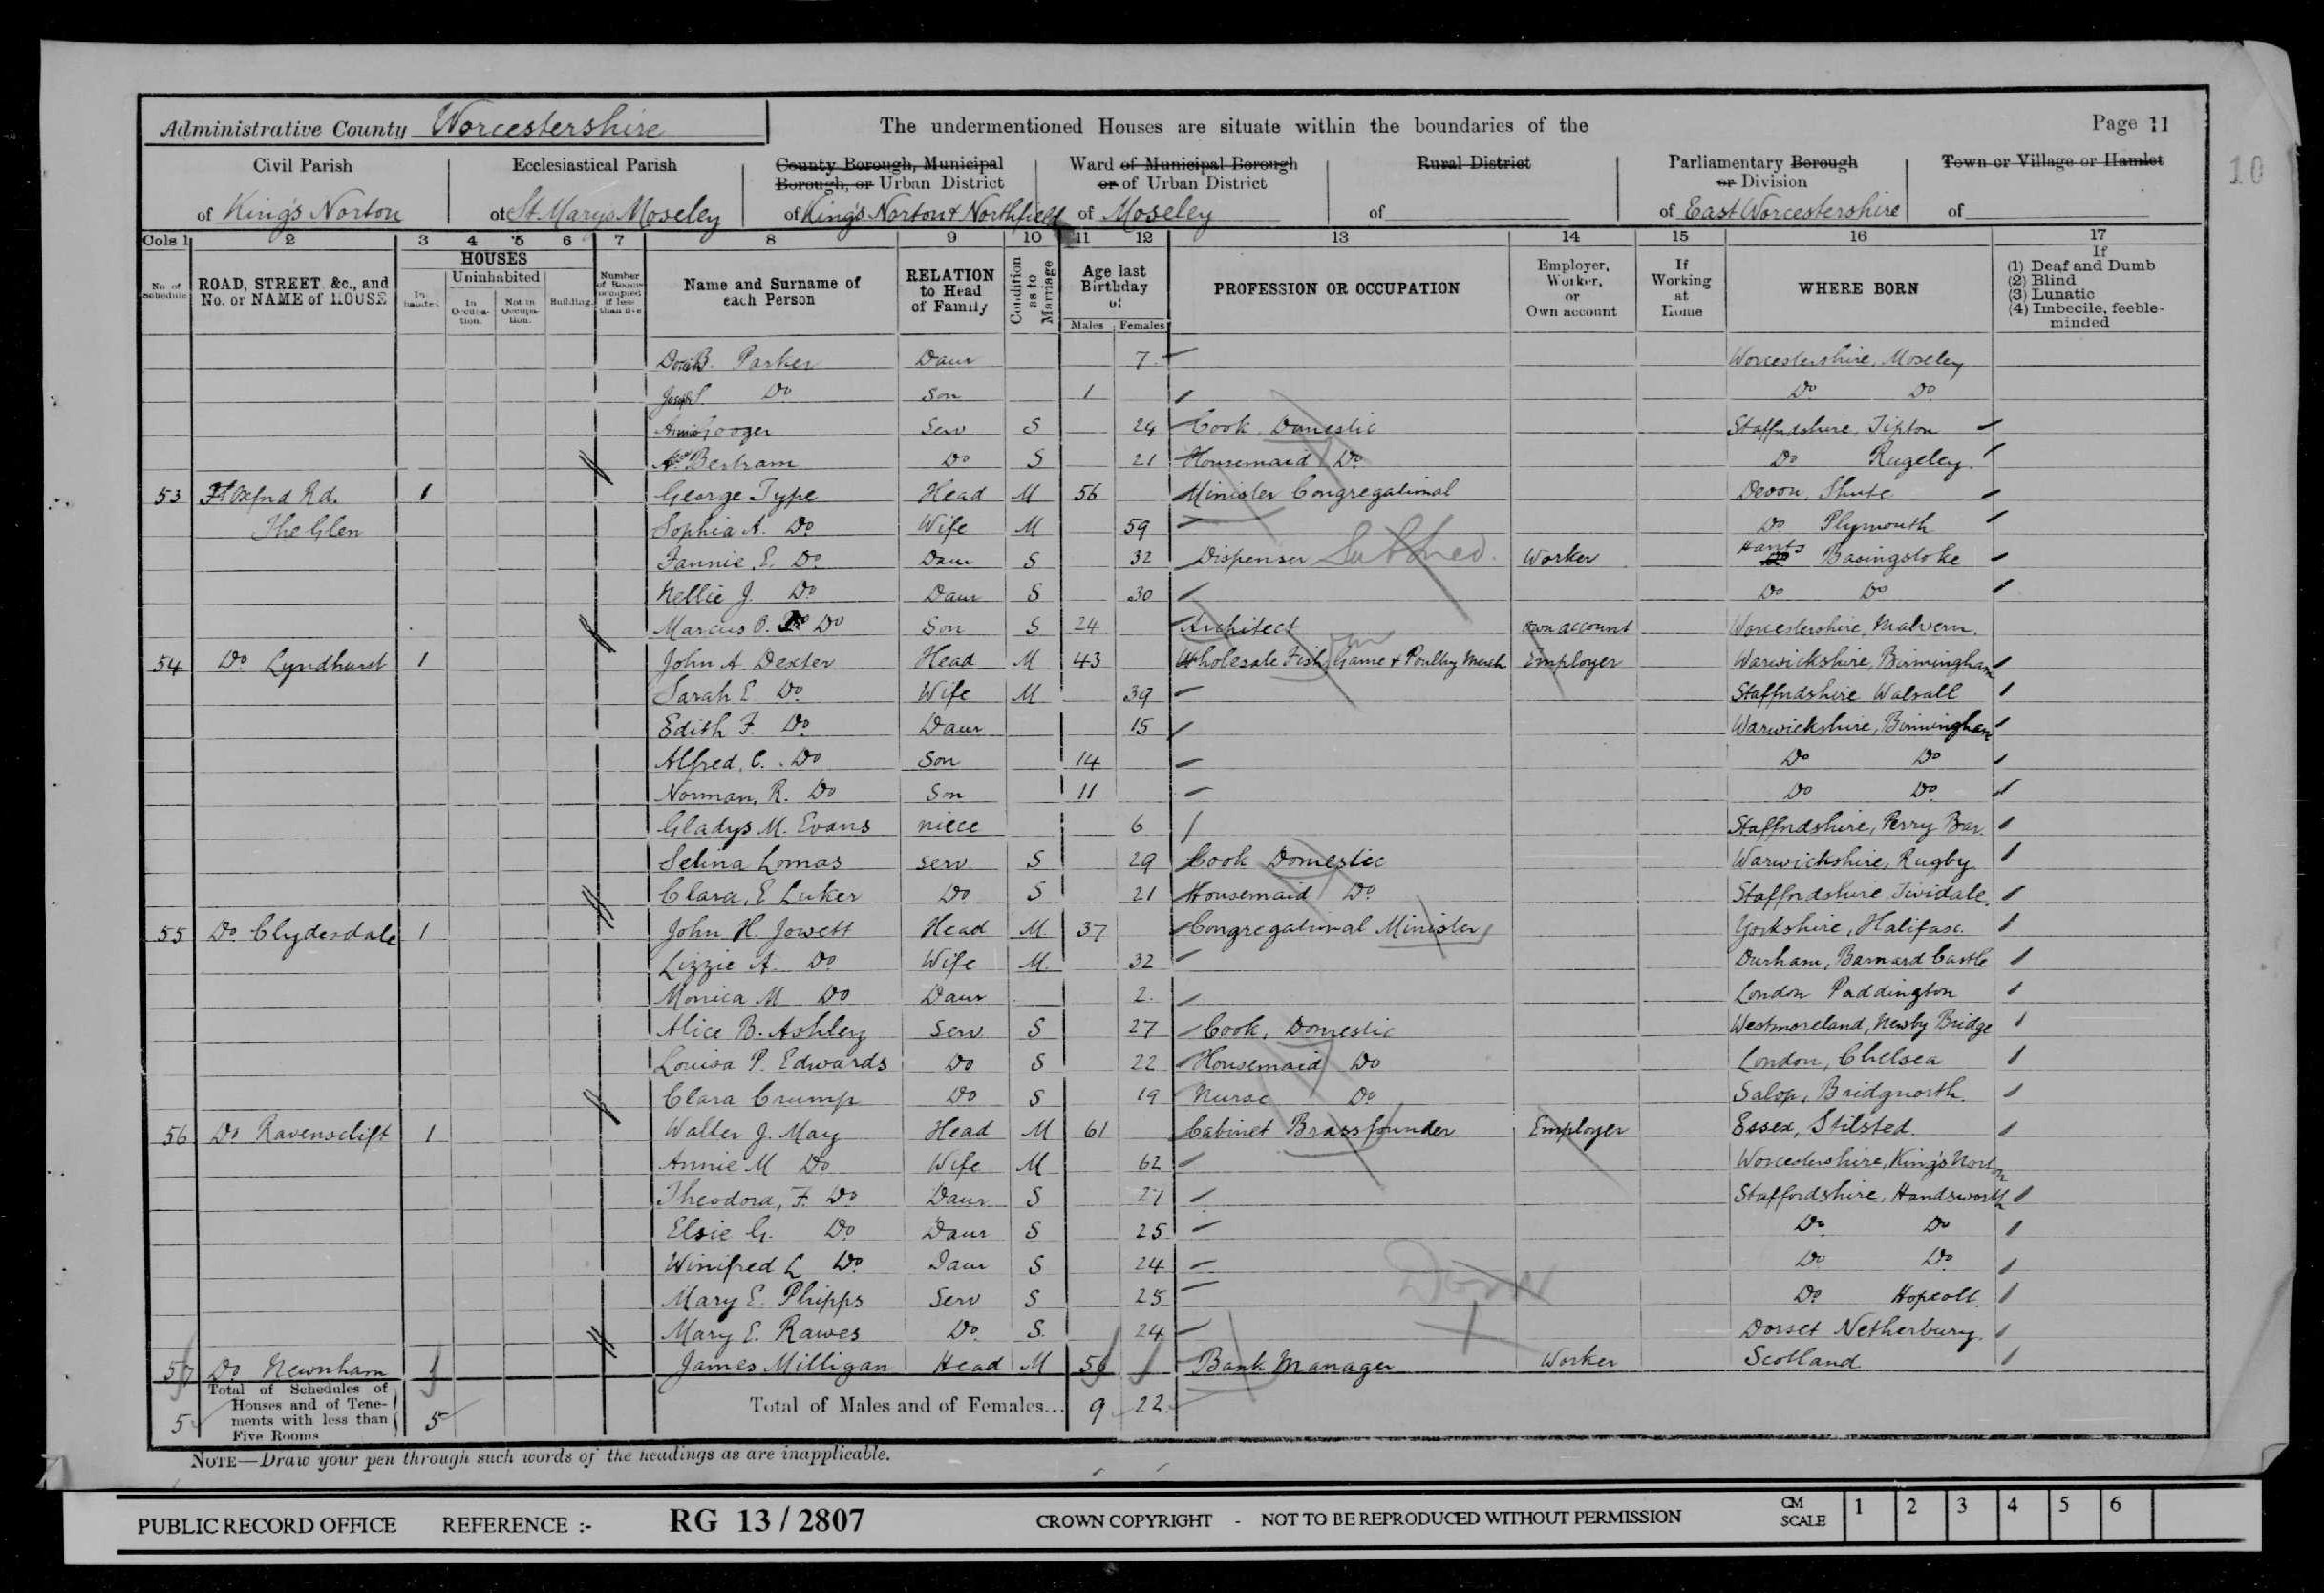 Administrative County Worcestershire The undermentioned Houses are situate within the boundaries of the Page 11
10
Civil Parish Ecclesiastical Parish County Borough, Municipal Borough, or Urban District Ward of Municipal Borough or of Urban District Rural District Parliamentary Borough or Division Town or Village or Hamlet
of King's Norton of St. Marys Moseley of King's Norton & Northfield of Moseley of of East Worcestershire of
Cols 1 2 3 4 5 6 7 8 9 10 11 12 13 14 15 16 17
No. of Schedule ROAD, STREET, &c., and No. or NAME of HOUSE HOUSES Inhabited Uninhabited In Occupation. Not in Occupation. Building Number of Rooms occupied if less than five Name and Surname of each Person RELATION to Head of Family Condition as to Marriage Age last Birthday of Males Females PROFESSION OR OCCUPATION Employer, Worker, or Own account If Working at Home WHERE BORN If (1) Deaf and Dumb (2) Blind (3) Lunatic (4) Imbecile, feeble-minded
B. Parker Daur 7 Worcestershire, Moseley
Joseph S. Do Son 1 Do Do
Serv S 24 Cook Domestic Staffordshire, Tipton
Bertram Do S 21 Housemaid Do Do Rugeley
53 Oxford Rd. 1 George Type Head M 56 Minister Congregational Devon, Shute
The Glen Sophia A. Do Wife M 59 Do Plymouth
Fannie, E. Do Daur S 32 Dispenser Worker Hants Basingstoke
Nellie J. Do Daur S 30 Do Do
Marcus O. Do Son S 24 Architect Own account Worcestershire, Malvern
54 Do Lyndhurst 1 John A. Dexter Head M 43 Wholesale Fish, Game & Poultry Merch Employer Warwickshire, Birmingham
Sarah E Do Wife M 39 Staffordshire Walsall
Edith F. Do Daur 15 Warwickshire, Birmingham
Alfred, C. Do Son 14 Do Do
Norman, R. Do Son 11 Do Do
Gladys M. Evans niece 6 Staffordshire, Perry Bar
Selina Lomas serv S 29 Cook Domestic Warwickshire, Rugby
Clara, E Luker Do S 21 Housemaid Do Staffordshire Tividale
55 Do Clydesdale 1 John H. Jowett Head M 37 Congregational Minister Yorkshire, Halifax
Lizzie A. Do Wife M. 32 Durham, Barnard Castle
Monica M Do Daur 2 London Paddington
Alice B. Ashley Serv S 27 Cook, Domestic Westmoreland, Newby Bridge
Louisa P. Edwards Do S 22 Housemaid Do London, Chelsea
Clara Crump Do S 19 Nurse Do Salop, Bridgnorth
56 Do Ravensclift 1 Walter J. May Head M 61 Cabinet Brassfounder Employer Essex, Stilsted
Annie M Do Wife M 62 Worcestershire, King's Norton
Theodora, F. Do Daur S 27 Staffordshire, Handsworth
Elsie G. Do Daur S 25 Do Do
Winifred L Do Daur S 24 Do Do
Mary E. Phipps Serv S 25 Do
Mary E. Rawes Do S. 24 Dorset Netherbury
57 Do Newnham 1 James Milligan Head M Bank Manager Worker Scotland
5 Total of Schedules of Houses and of Tenements with less than Five Rooms 5 Total of Males and of Females... 9 22
NOTE—Draw your pen through such words of the headings as are inapplicable.
PUBLIC RECORD OFFICE REFERENCE :- RG 13 / 2807 CROWN COPYRIGHT - NOT TO BE REPRODUCED WITHOUT PERMISSION CM SCALE 1 2 3 4 5 6